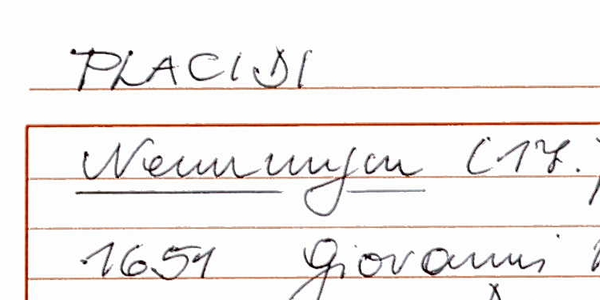 PLACIDI
Nennungen (17.)
1651 Giovanni